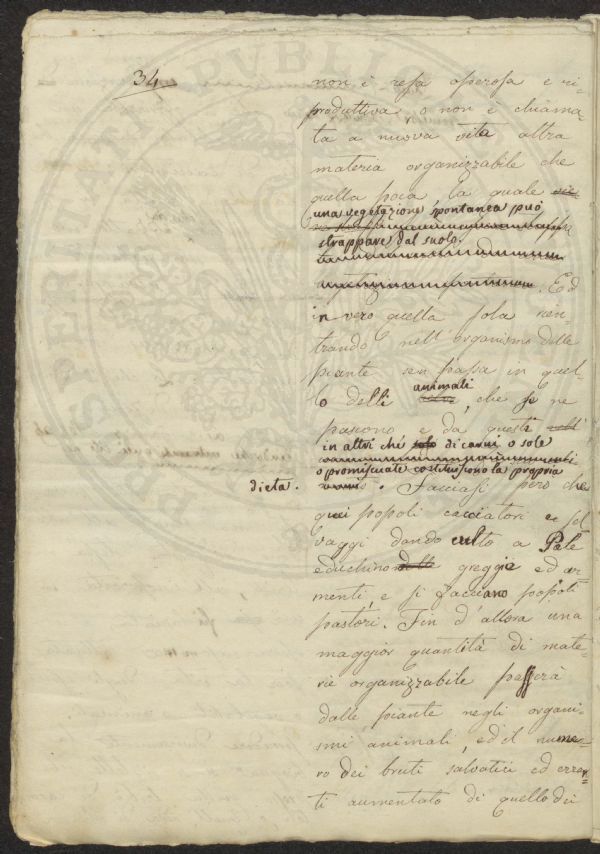 34
non è resa operosa e ri-
produttiva, o non è chiama-
ta a nuova vita altra
materia organizzabile che
quella poca la quale
una vegetazione spontanea può
strappare dal suolo.
Ed
in vero quella sola ren-
trando nell'organismo delle
piante sen passa in quel-
lo delli animali, che se ne
pascono e da questi
in altri ché di carni o sole
o promiscuate costituiscono la propria
dieta. Facciasi però che
quei popoli cacciatori e sel
vaggi dando culto a Pale
educhino greggie ed ar-
menti e si facciano popoli
pastori. Fin d'allora una
maggior quantità di mate-
rie organizzabile passerà
dalle piante negli organi-
smi animali, ed il nume-
ro dei bruti salvatici ed erran-
ti aumentato di quello dei